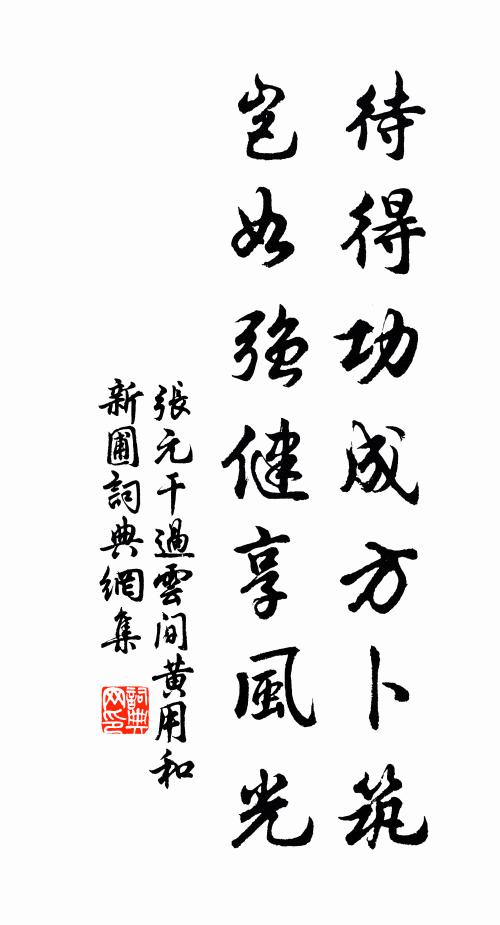 待得功成方卜筑
豈如強健享風光
張元干過雲间黄用和
新圃詞典網集
詞典网印